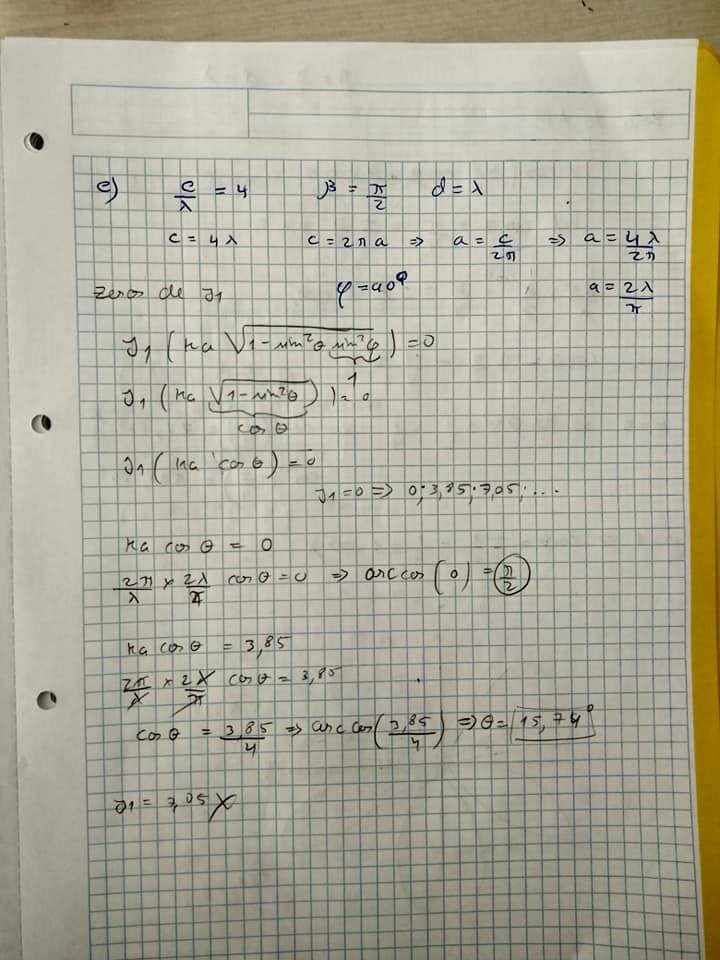 e) c/λ = 4 β = π/2 d = λ
c = 4λ c = 2πa ⇒ a = c/2π ⇒ a = 4λ/2π
zeros de J1 φ = 90° a = 2λ/π
J1 (ka √(1 - sin²θ sin²φ)) = 0
1
J1 (ka √(1 - sin²θ)) = 0
cos θ
J1 (ka cos θ) = 0
J1 = 0 ⇒ 0; 3,85; 7,05; ...
ka cos θ = 0
2π/λ × 2λ/π cos θ = 0 ⇒ arc cos (0) = π/2
ka cos θ = 3,85
2π/λ × 2λ/π cos θ = 3,85
cos θ = 3,85/4 ⇒ arc cos (3,85/4) ⇒ θ = 15,74°
J1 = 7,05 X